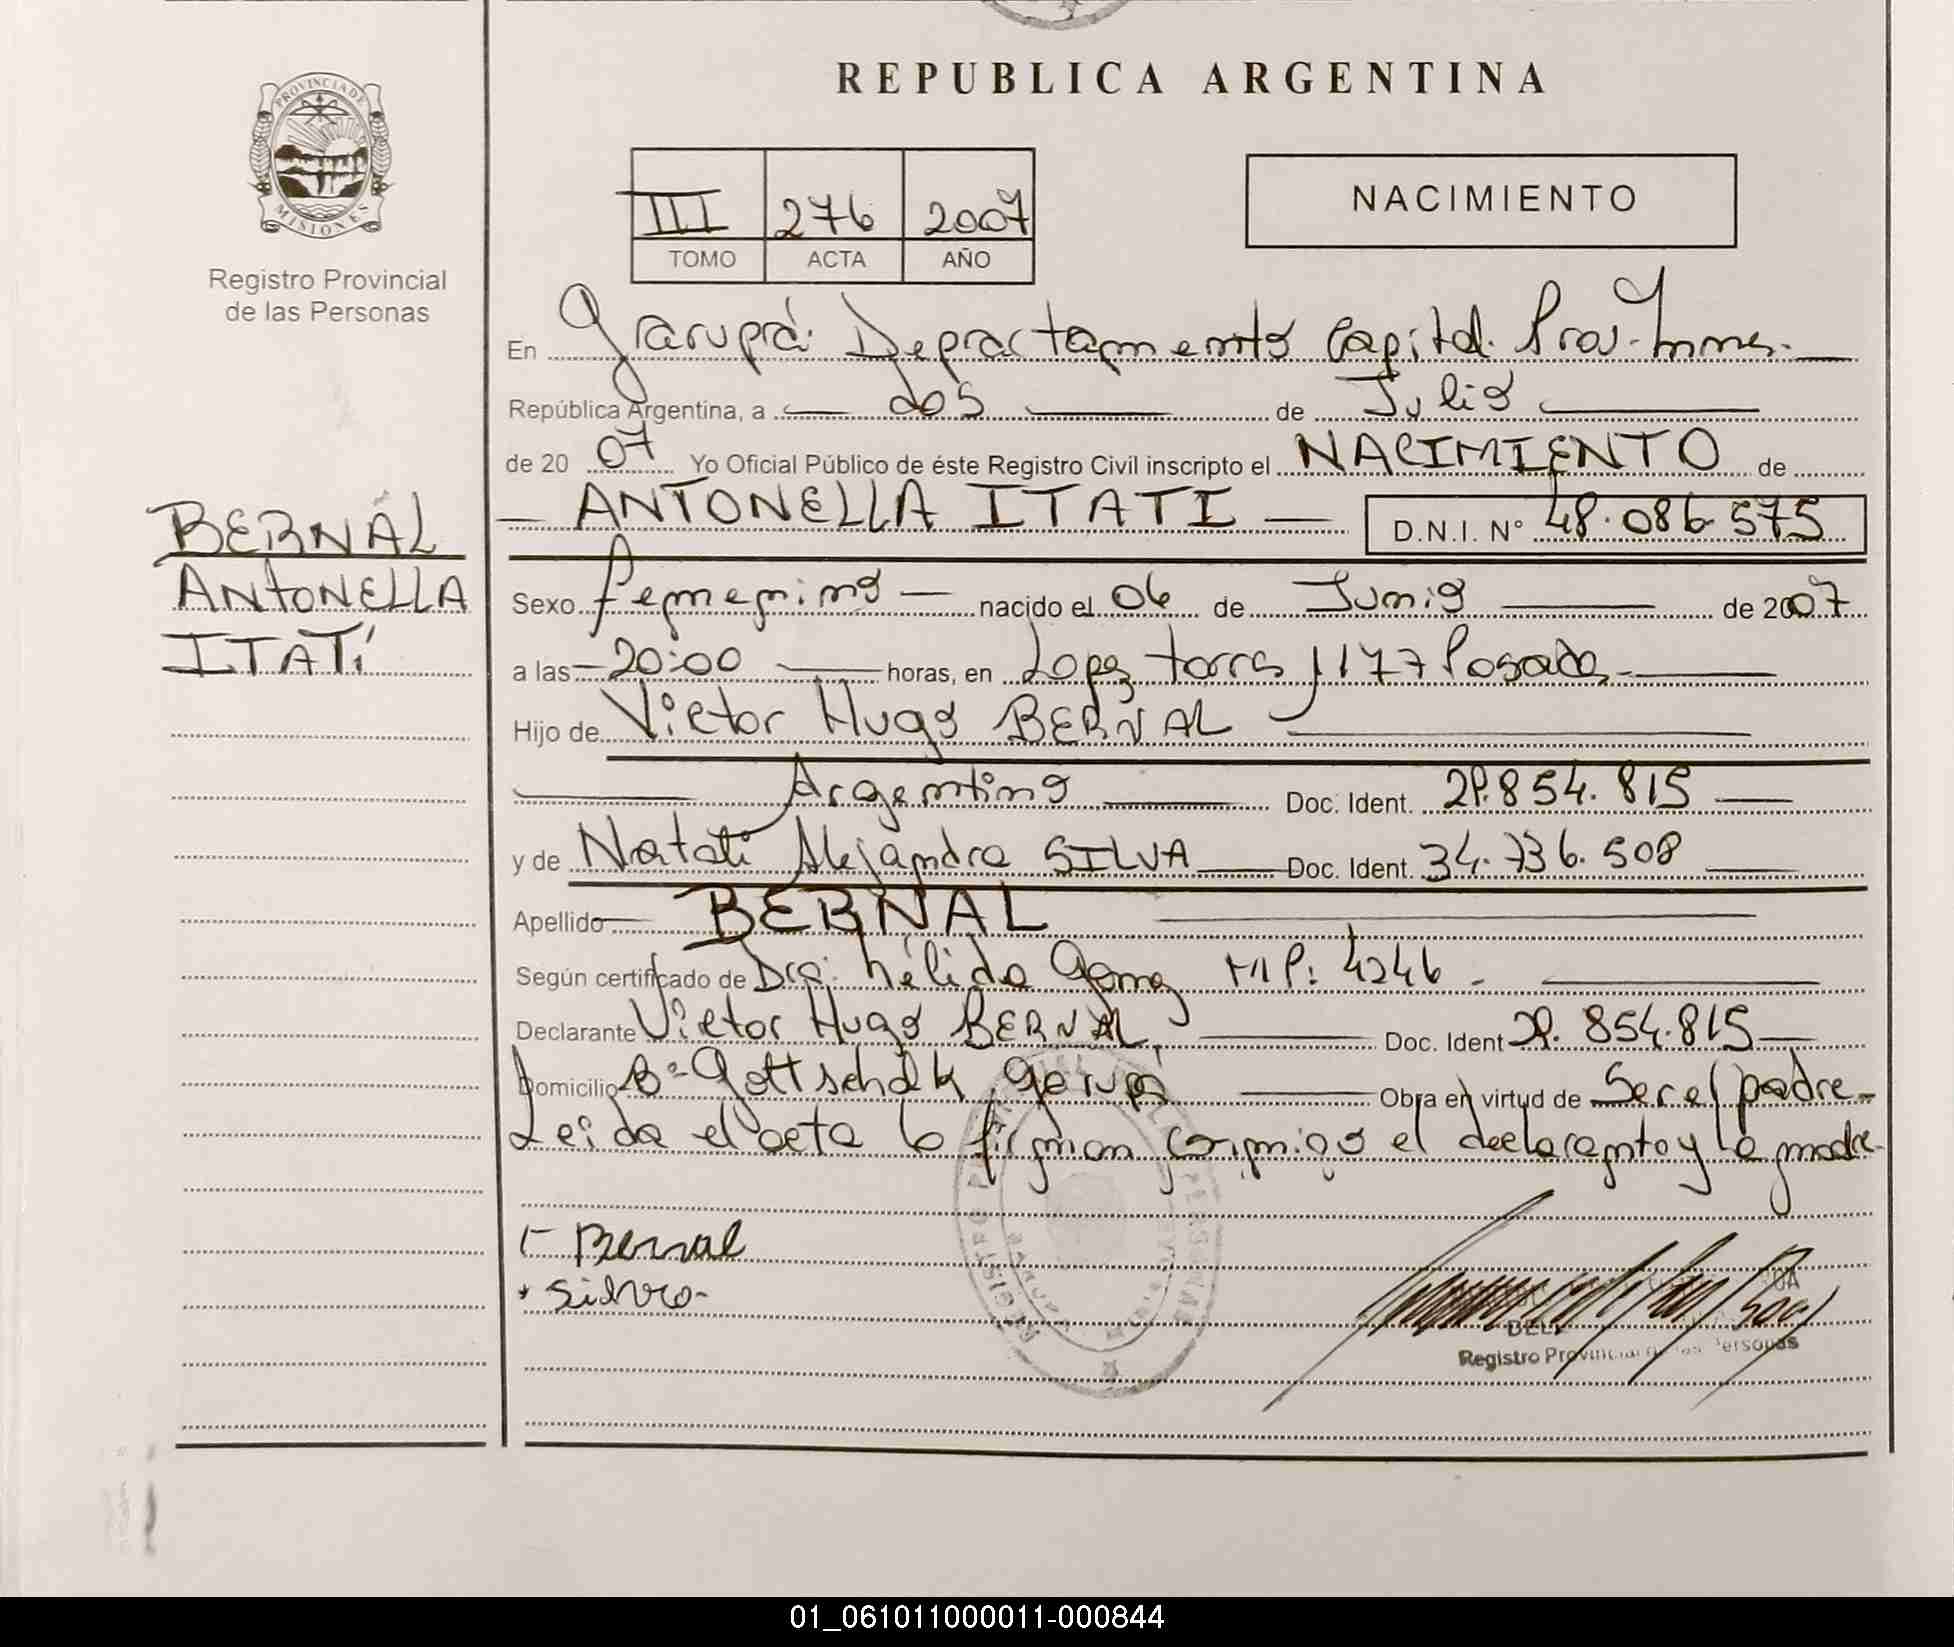 REPUBLICA ARGENTINA
PROVINCIA DE
MISIONES
Registro Provincial
de las Personas
III 276 2007
TOMO ACTA AÑO
NACIMIENTO
En Garupá Departamento Capital. Prov.
República Argentina, a dos de Julio
de 2007 Yo Oficial Público de éste Registro Civil inscripto el NACIMIENTO de
ANTONELLA ITATI D.N.I. Nº 48.086.575
BERNAL
ANTONELLA
ITATÍ
Sexo femenino nacido el 06 de Junio de 2007
a las 20:00 horas, en Lopez torres 1177 Posadas
Hijo de Victor Hugo BERNAL
Argentino Doc. Ident. 29.854.815
y de Natali Alejandra SILVA Doc. Ident. 34.736.508
Apellido BERNAL
Según certificado de Dra: Nélida Gomez MP: 4246
Declarante Victor Hugo BERNAL Doc. Ident 29.854.815
Domicilio Bº Gottschalk Garupá Obra en virtud de Ser el padre
Leida el acta la firman conmigo el declarante y la madre
Bernal
Silva
Registro Provincial de las Personas
01_061011000011-000844